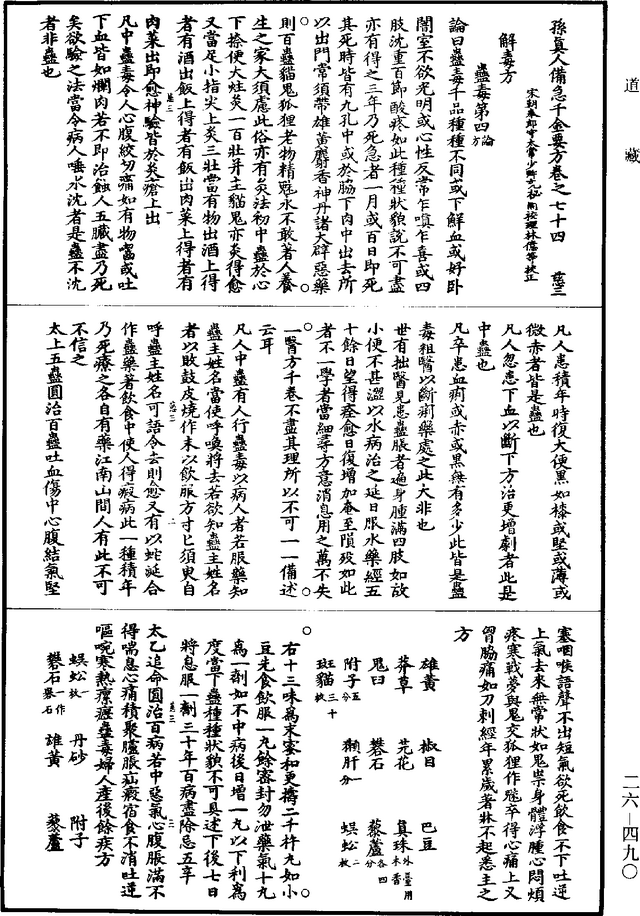 道藏
孫真人備急千金要方卷之七十四 慈三
宋朝奉郎守太常少卿充秘閣校理林億等校正
解毒方
蠱毒第四論方
論曰蠱毒千品種種不同或下鮮血或好卧
闇室不欲光明或心性反常乍嗔乍喜或四
肢沈重百節酸疼如此種種狀貌說不可盡
亦有得之三年乃死急者一月或百日即死
其死時皆有九孔中或於脇下肉中出去所
以出門常須帶雄黃麝香神丹諸大辟惡藥
則百蠱貓鬼狐狸老物精魅永不敢著人養
生之家大須慮此俗亦有灸法初中蠱於心
下捺便大炷灸一百壯并主貓鬼亦灸得愈
又當足小指尖上灸三壯當有物出酒上得
者有酒出飯上得者有飯出肉菜上得者有
肉菜出即愈神驗皆於灸瘡上出
凡中蠱毒令人心腹絞切痛如有物嚙或吐
下血皆如爛肉若不即治蝕人五臟盡乃死
矣欲驗之法當令病人唾水沈者是蠱不沈
者非蠱也
凡人患積年時復大便黑如漆或堅或薄或
微赤者皆是蠱也
凡人忽患下血以斷下方治更增劇者此是
中蠱也
凡卒患血痢或赤或黑無有多少此皆是蠱
毒粗醫以斷痢藥處之此大非也
世有拙醫見患蠱脹者遍身腫滿四肢如故
小便不甚澀以水病治之延日服水藥經五
十餘日望得痊愈日復增加奄至隕歿如此
者不一學者當細尋方意消息用之萬不失
一醫方千卷不盡其理所以不可一一備述
云耳
凡人中蠱有人行蠱毒以病人者若服藥知
蠱主姓名當使呼喚將去若欲知蠱主姓名
者以敗鼓皮燒作末以飲服方寸匕須臾自
呼蠱主姓名可語令去則愈又有以蛇涎合
作蠱藥著飲食中使人得瘕病此一種積年
乃死療之各自有藥江南山間人有此不可
不信之
太上五蠱圓治百蠱吐血傷中心腹結氣堅
塞咽喉語聲不出短氣欲死飲食不下吐逆
上氣去來無常狀如鬼祟身體浮腫心悶煩
疼寒戰夢與鬼交狐狸作魅卒得心痛上叉
胷脇痛如刀刺經年累歲著牀不起悉主之
方
雄黃 椒目 巴豆
莽草 芫花 真珠外臺用木香
鬼臼 礬石 藜蘆各四分
附子五分 獺肝一分 蜈蚣二枚
斑貓三十枚
右十三味為末蜜和更擣二千杵丸如小
豆先食飲服一丸餘密封勿泄藥氣十丸
為一劑如不中病後日增一丸以下利為
度當下蠱種種狀貌不可具述下後七日
將息服一劑三十年百病盡除忌五辛
太乙追命圓治百病若中惡氣心腹脹滿不
得喘息心痛積聚臚脹疝瘕宿食不消吐逆
嘔啘寒熱瘰癧蠱毒婦人產後餘疾方
蜈蚣一枚 丹砂 附子
礬石一作礜石 雄黃 藜蘆
二六—四九〇